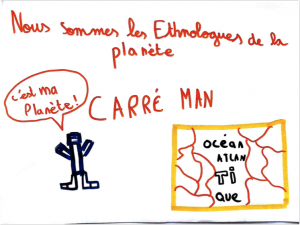 Nous sommes les Ethnologues de la
planète
c'est ma
Planète!
CARRÉ MAN
OCÉAN
ATLAN
TI
QUE